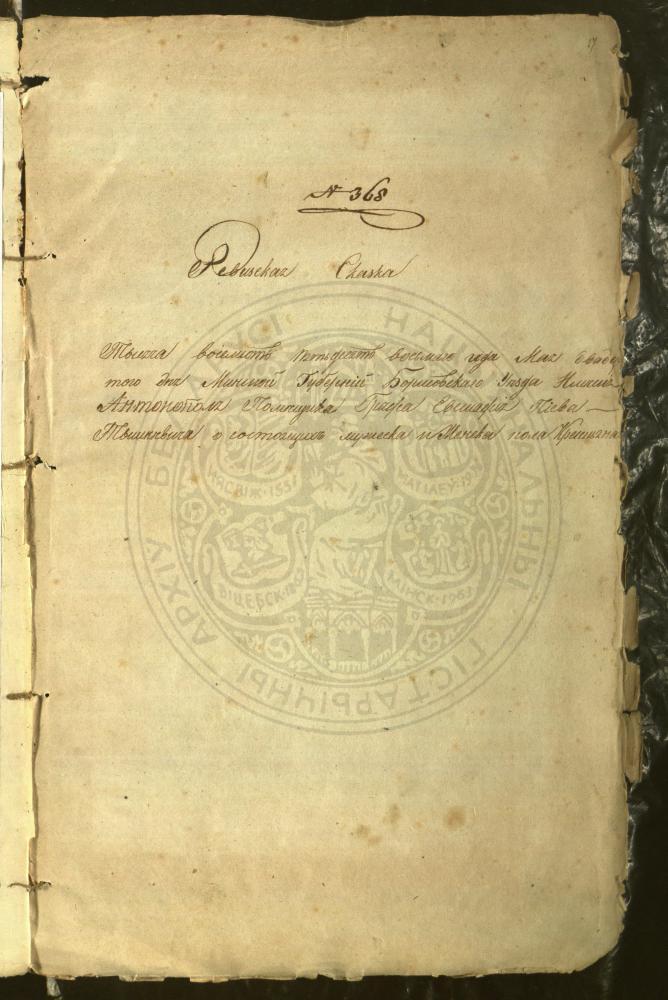 17
№ 368
Ревизская Сказка
Тысяча восемсотъ пятьдесятъ восьмаго года Мая
того дня Минской Губерніи Борисовскаго Уѣзда Имѣнія
Антонополя Помѣщика Графа Евстафія
Тышкевича о состоящихъ мужеска и Женска пола Крестьяна
НАЦЫЯНАЛЬНЫ
ГІСТАРЫЧНЫ АРХІЎ БЕЛАРУСІ
НЯСВІЖ·1551
МІНСК·1963